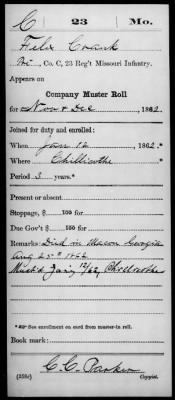 C | 23 | Mo.
Felix Crank
Pvt, Co. C, 23 Reg't Missouri Infantry.
Appears on
Company Muster Roll
for Nov & Dec, 1862.
Joined for duty and enrolled:
When Jan 12, 1862.*
Where Chillicothe
Period 3 years.*
Present or absent
Stoppage, $ 100 for
Due Gov't $ 100 for
Remarks: Died in Macon Georgia
Aug 25th 1862
Must'd Jan'y 12/62, Chillicothe
*See enrollment on card from muster-in roll.
Book mark:
C. C. Parker
(358c) Copyist.